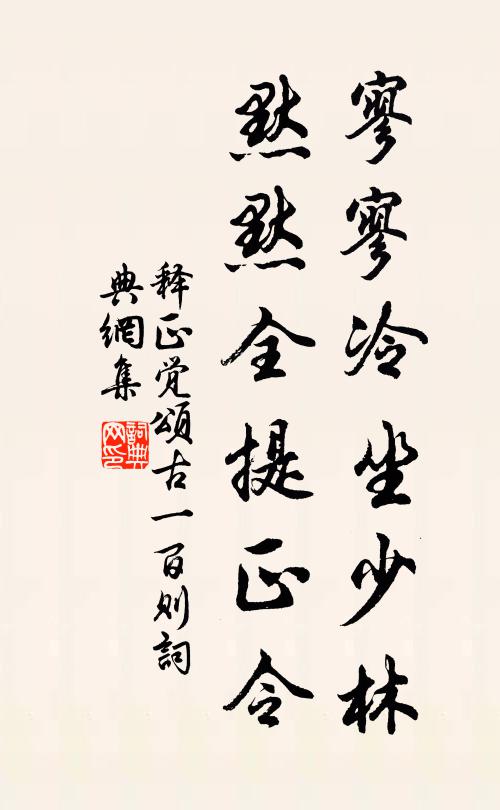 寥寥冷坐少林
默默全提正令
释正觉頌古一百则詞
典網集
詞典网印